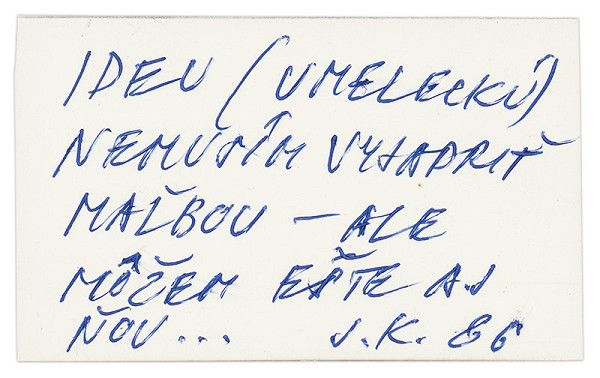 IDEU (UMELECKÚ)
NEMUSÍM VYJADRIŤ
MAĽBOU – ALE
MÔŽEM EŠTE AJ
ŇOU... J.K. 86